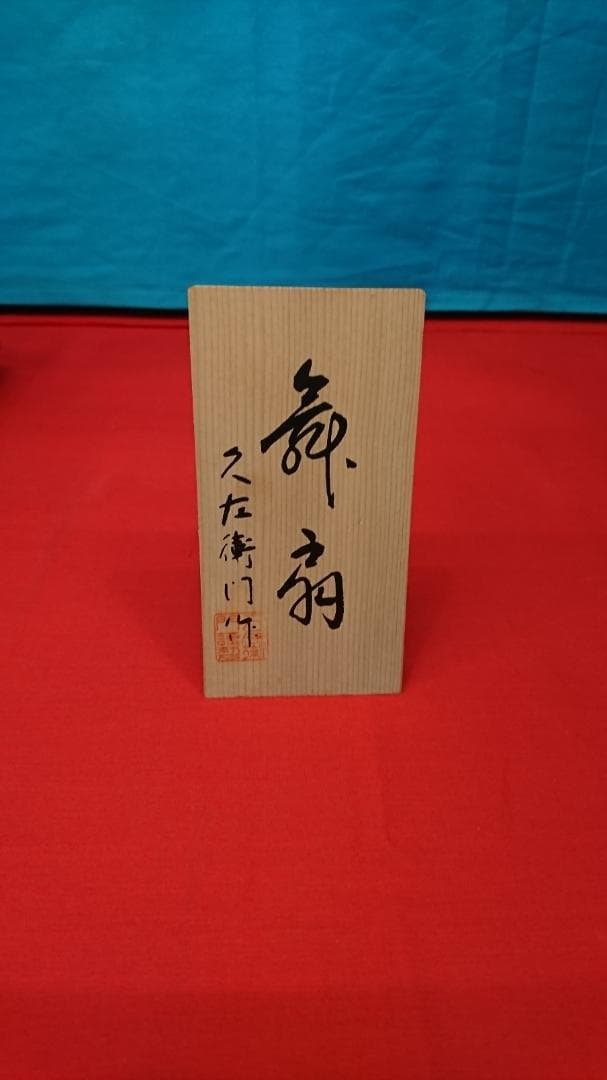 舞扇
久左衛門作